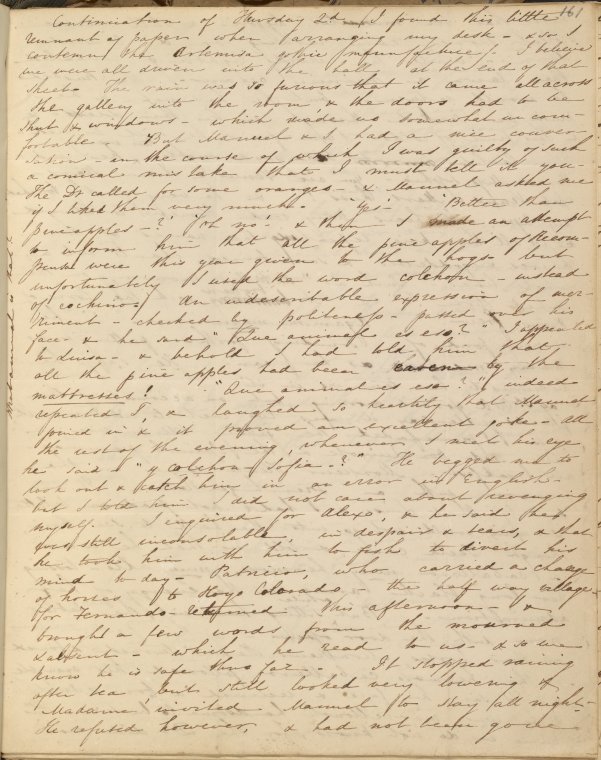 161
Continuation of Thursday 2d_ I found this little
remnant of paper when arranging my desk - & so I
contemn the Artemisa gothic manufacture! I believe
we were all driven into the hall at the end of that
sheet. The rain was so furious that it came all across
the gallery into the room, & the doors had to be
shut & windows - which made us somewhat uncom-
fortable - But Manuel & I had a nice conver-
sation - in the course of which I was guilty of such
a comical mistake that I must tell it you -
The Dr called for some oranges - & Manuel asked me
if I liked them very much - 'Yes' - 'Better than
pineapples - ?' 'Oh no' - & then I made an attempt
to inform him that all the pine apples of Recom-
pensa were this year given to the hogs - but
unfortunately I used the word colchon - instead
of cochino - An indescribable expression of mer-
riment - checked by politeness - passed over his
face - & he said "Que animal es eso?" I appealed
to Luisa - & behold I had told him that
all the pine apples had been eaten by the
mattresses! "Que animal es eso?" indeed
repeated I, & laughed so heartily that Manuel
joined in & it proved an excellent joke - All
the rest of the evening, whenever I met his eye
he said - "y colchon - Sofia - ?" He begged me to
look out & catch him in an error in English -
but I told him I did not care about revenging
myself. I inquired for Alexo, & he said he
was still inconsolable, in despair & tears, & that
he took him with him to fish to divert his
mind to day - Patricio, who carried a change
of horses to Hoyo Colorado - the half way village -
for Fernando - returned this afternoon - &
brought a few words from the mourned
& absent - which he read to us - & so we
know he is safe thus far - It stopped raining
after tea but still looked very lowering &
Madame invited Manuel to stay all night -
He refused however, & had not been gone